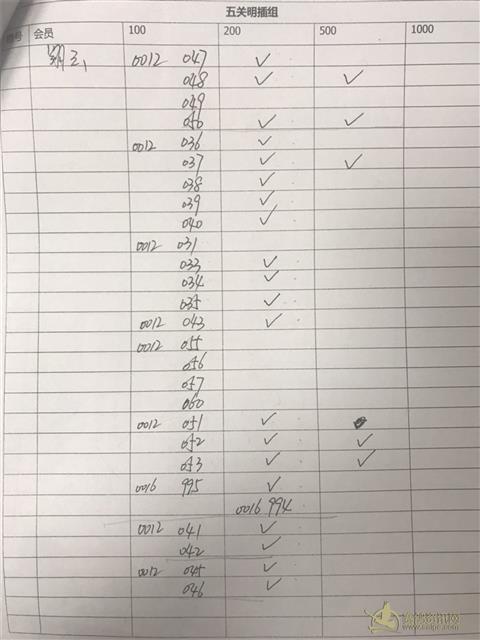 五关明插组
会员 100 200 500 1000
0012 047 ✓
048 ✓ ✓
049
050 ✓ ✓
0012 036 ✓
037 ✓ ✓
038 ✓
039 ✓
040 ✓
0012 031
033 ✓
034 ✓
035 ✓
0012 043 ✓
0012 055
056
057
060
0012 051 ✓
052 ✓ ✓
053 ✓ ✓
0016 995 ✓
0016 994
0012 041 ✓
042 ✓
0012 045 ✓
046 ✓